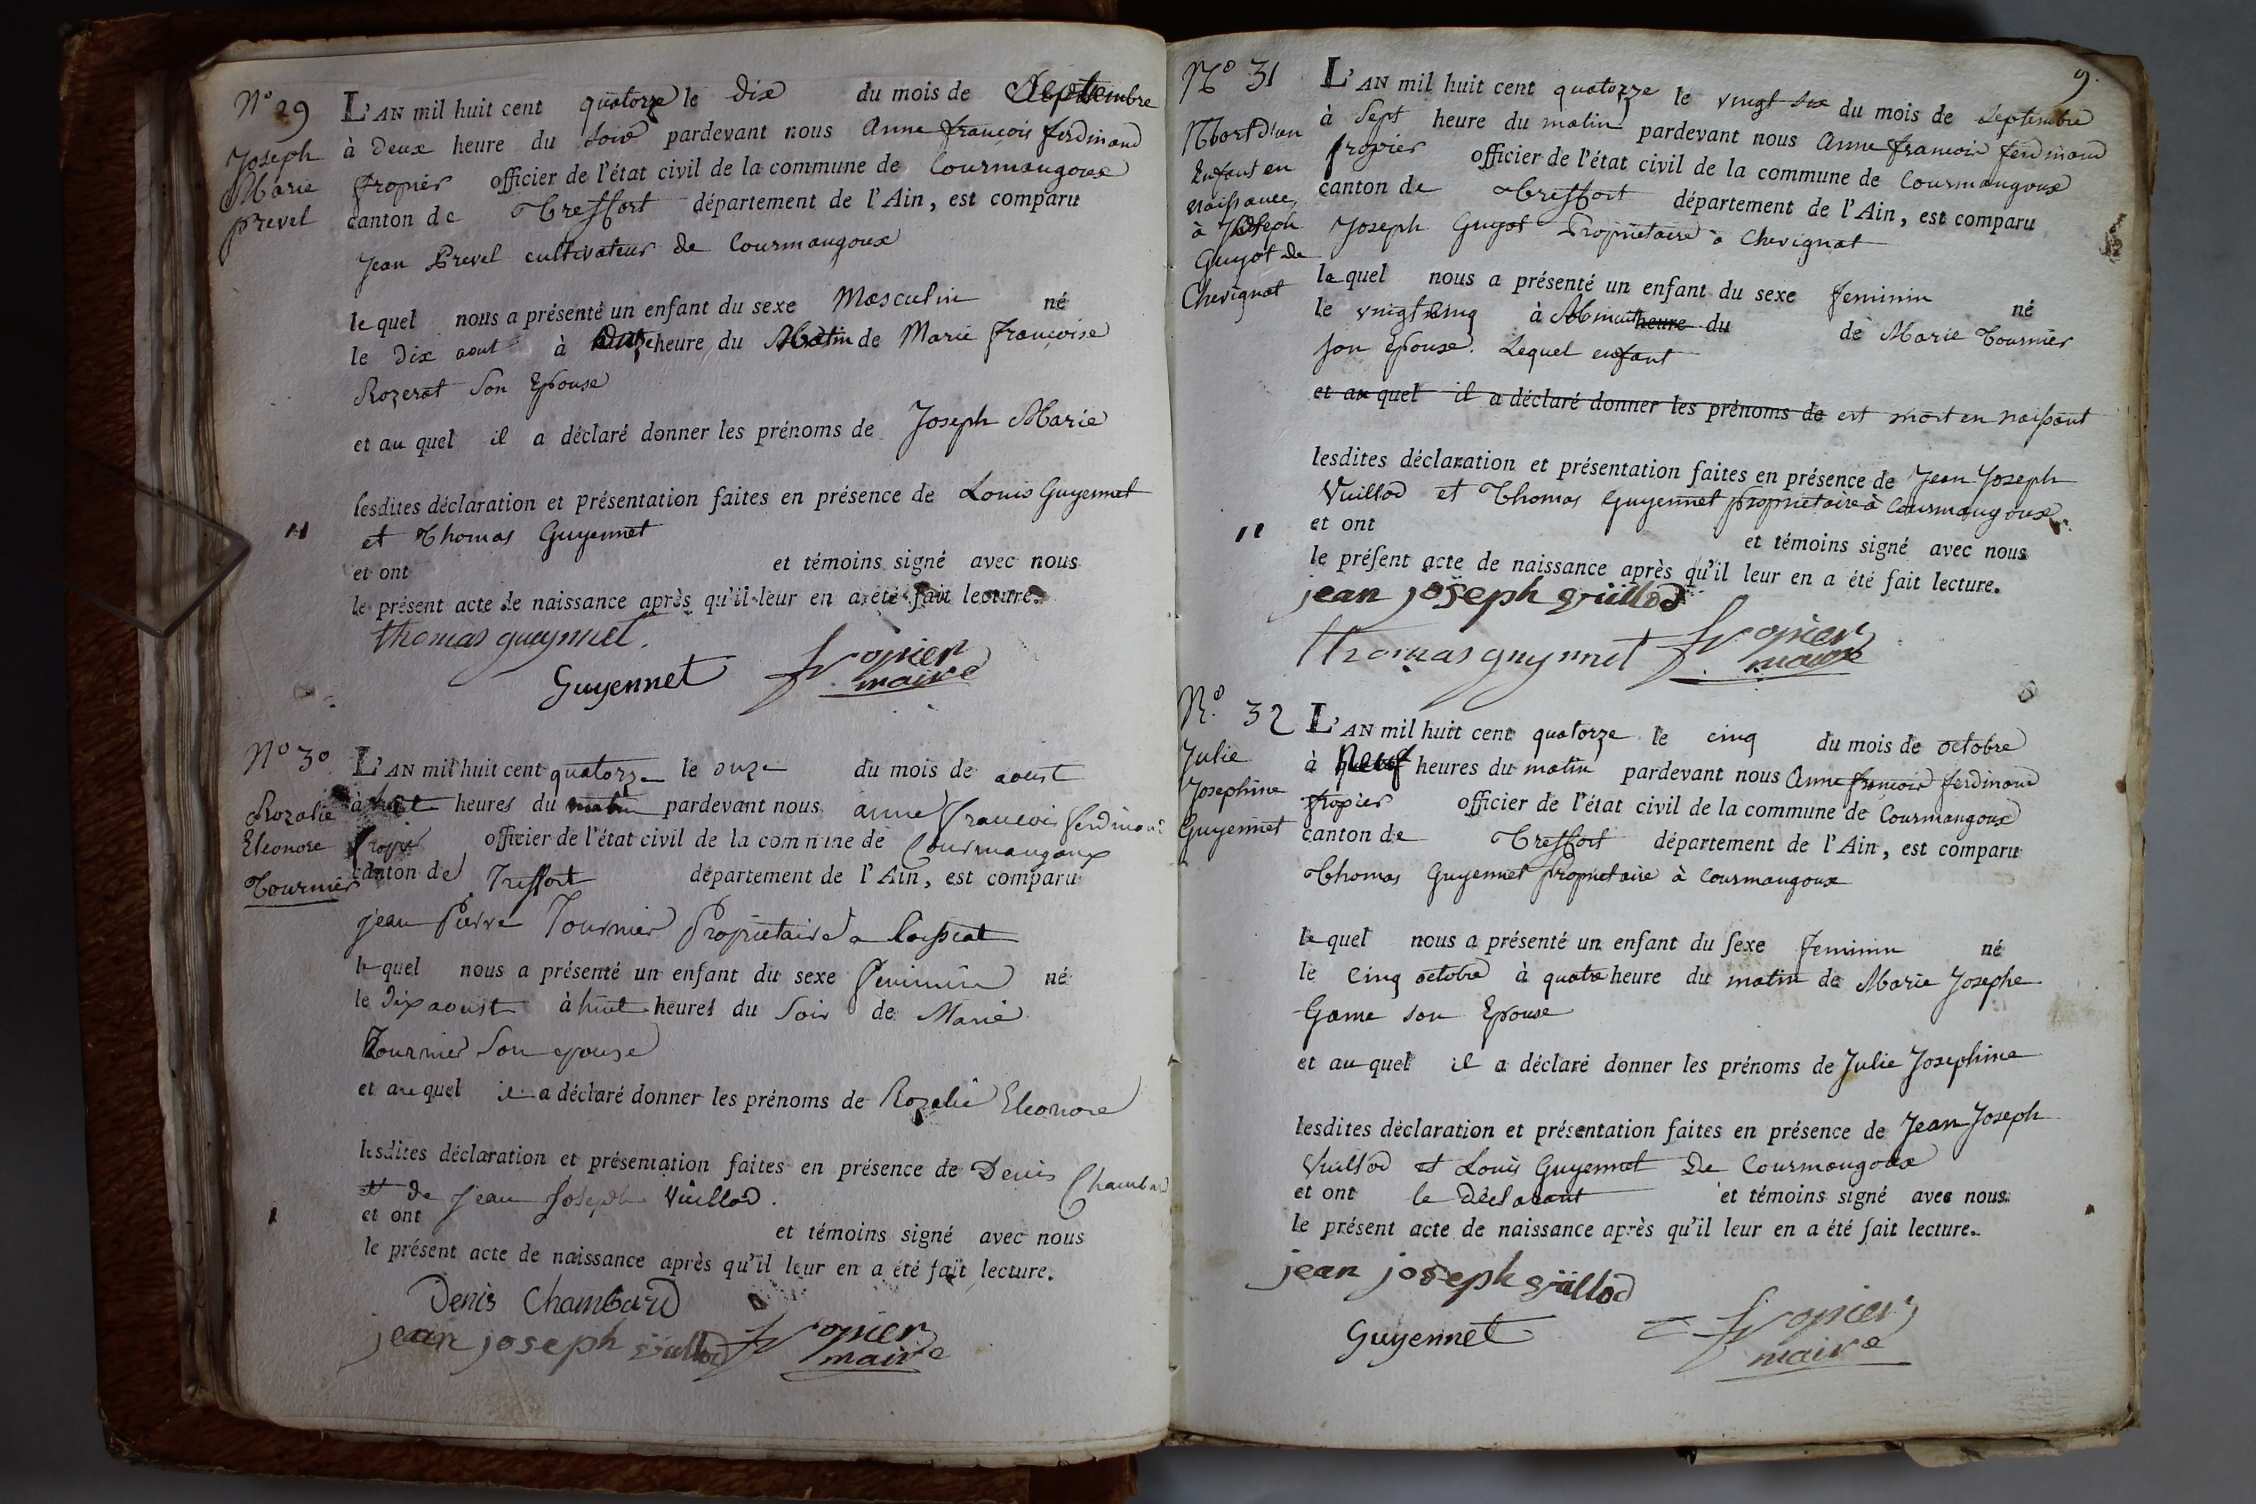 N° 29
Joseph
Marie
Prevel
L'AN mil huit cent quatorze le dix du mois de Septembre
à deux heure du soir pardevant nous Anne françois ferdinand
fropier officier de l'état civil de la commune de Courmangoux
canton de Treffort département de l'Ain, est comparu
Jean Prevel cultivateur de Courmangoux
le quel nous a présenté un enfant du sexe Masculin né
le dix aout à heure du Matin de Marie françoise
Rozerat son Epouse
et au quel il a déclaré donner les prénoms de Joseph Marie
lesdites déclaration et présentation faites en présence de Louis Guyennet
et Thomas Guyennet
et ont et témoins signé avec nous
le présent acte de naissance après qu'il leur en a été fait lecture.
thomas guynnet.
Guyennet fropier
maire
N° 30
Rozalie
Eleonore
Tournier
L'AN mil huit cent quatorze le onze du mois de aoust
à huit heures du matin pardevant nous anne francois ferdinand
fropier officier de l'état civil de la commune de Courmangoux
canton de Treffort département de l'Ain, est comparu
jean pierre Tournier Propriétaire a
le quel nous a présenté un enfant du sexe feminin né
le dix aoust à huit heures du soir de Marie
Tournier son epouse
et au quel il a déclaré donner les prénoms de Rozalie Eleonore
lesdites déclaration et présentation faites en présence de Denis Chambard
et de Jean Joseph Vuillod.
et ont et témoins signé avec nous
le présent acte de naissance après qu'il leur en a été fait lecture.
Denis Chambard
jean joseph vuillod fropier
maire
9.
N° 31
Mort d'un
Enfant en
naissance,
à Joseph
Guyot de
Chevignat
L'AN mil huit cent quatorze le vingt six du mois de Septembre
à Sept heure du matin pardevant nous Anne francois ferdinand
fropier officier de l'état civil de la commune de Courmangoux
canton de Treffort département de l'Ain, est comparu
Joseph Guyot Propriétaire à Chevignat
le quel nous a présenté un enfant du sexe feminin né
le vingt cinq à Minuit heure du de Marie Tournier
son Epouse. Lequel enfant
et au quel il a déclaré donner les prénoms de est mort en naissant
lesdites déclaration et présentation faites en présence de Jean Joseph
Vuillod et Thomas Guyennet propriétaire à Courmangoux
et ont et témoins signé avec nous
le présent acte de naissance après qu'il leur en a été fait lecture.
jean joseph vuillod
thomas guynnet fropier
maire
N° 32
Julie
Josephine
Guyennet
L'AN mil huit cent quatorze le cinq du mois de octobre
à Neuf heures du matin pardevant nous Anne francois ferdinand
fropier officier de l'état civil de la commune de Courmangoux
canton de Treffort département de l'Ain, est comparu
Thomas Guyennet propriétaire à Courmangoux
le quel nous a présenté un enfant du sexe feminin né
le cinq octobre à quatre heure du matin de Marie Josephe
Game son Epouse
et au quel il a déclaré donner les prénoms de Julie Josephine
lesdites déclaration et présentation faites en présence de Jean Joseph
Vuillod et Louis Guyennet de Courmangoux
et ont le déclarant et témoins signé avec nous
le présent acte de naissance après qu'il leur en a été fait lecture.
jean joseph vuillod
Guyennet fropier
maire